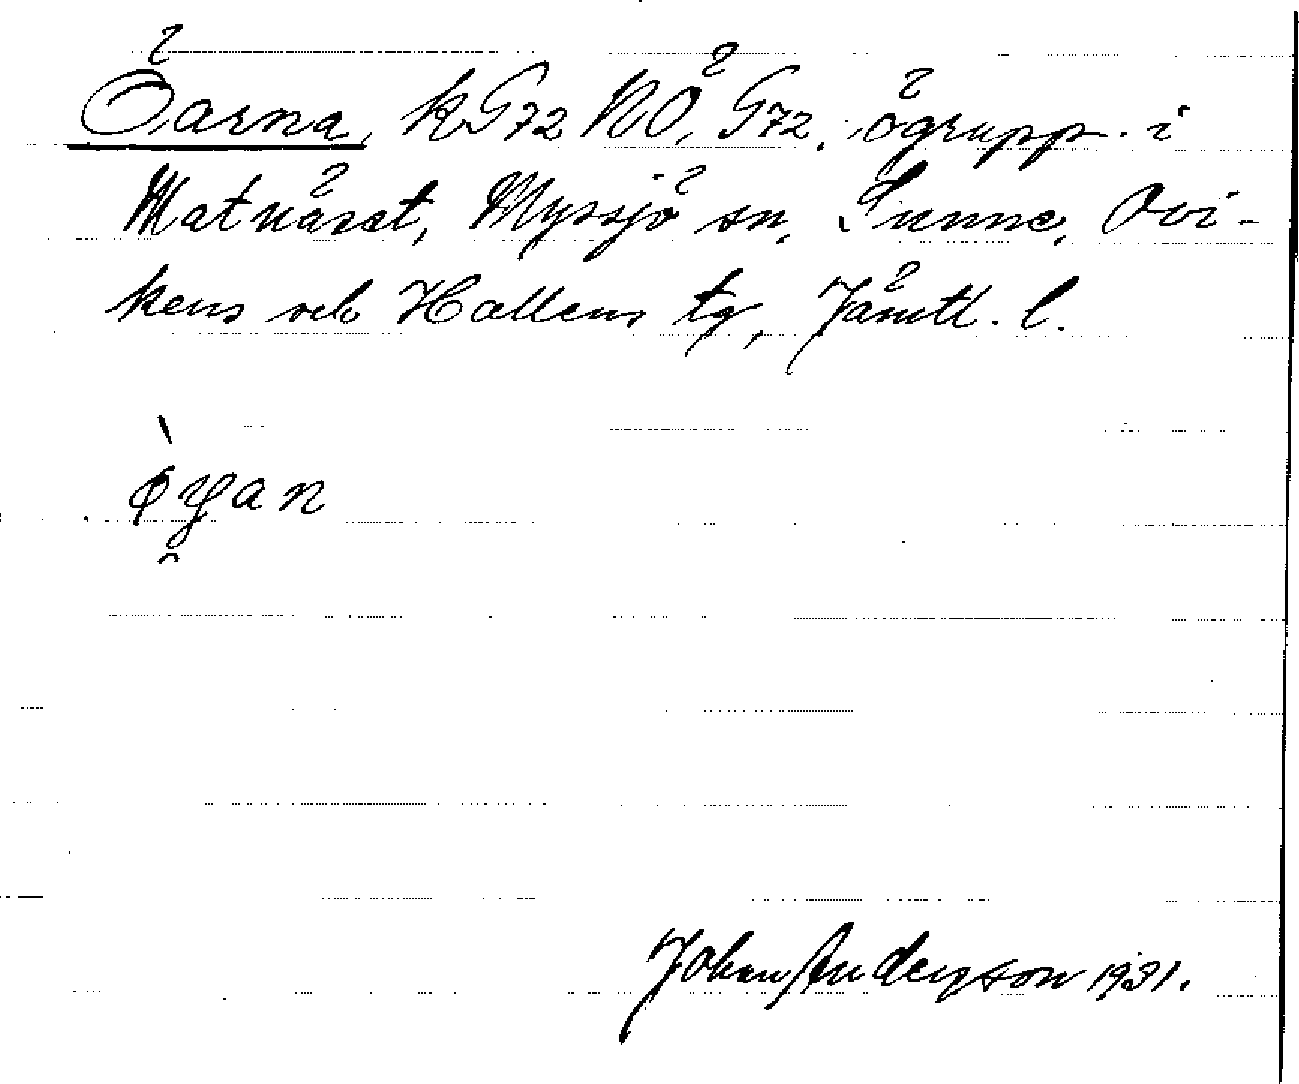 Öarna, kG72 NÖ, G72, ögrupp. i
Matnäset, Myssjö sn. Sunne, Ovi-
kens och Hallens tg, Jämtl. l.
Johan Anderson 1931.